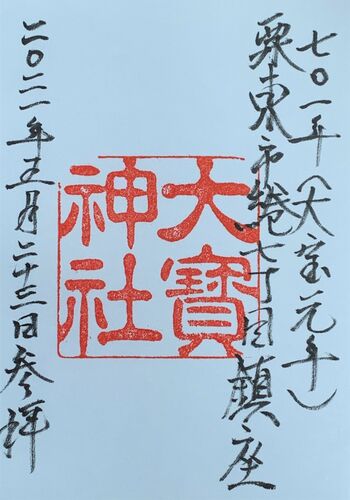 七〇一年(大宝元年)
栗東市綣七丁目鎮座
大寶
神社
二〇二一年五月二十三日参拝